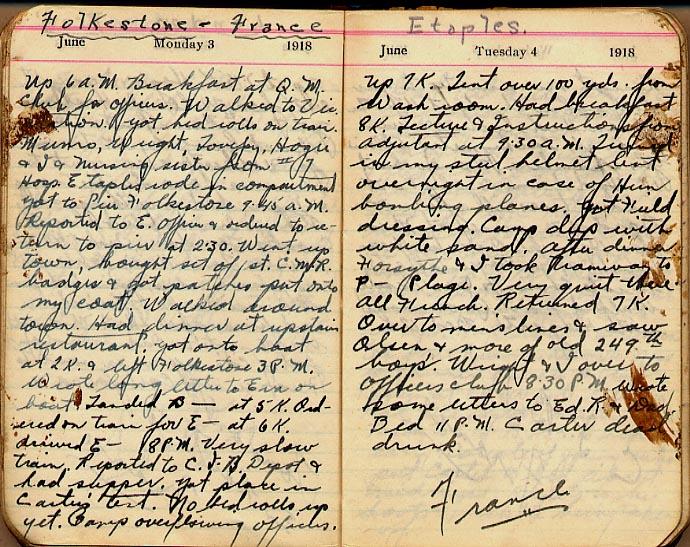 Folkestone - France
June Monday 3 1918
Up 6 A.M. Breakfast at Q.M.
Club for officers. Walked to Vic.
tion. Got bed rolls on train.
Munro, Wright, Lovejoy, Hogie
& I & Nursing sister from # 7
Hosp. Etaples rode in compartment
got to Pier Folkestone 9.45 A.M.
Reported to E. officer & ordered to re-
turn to pier at 2:30. Went up
town, bought set of 1st. C.M.R.
badges & got patches put onto
my coat. Walked around
town. Had dinner at upstairs
restaurant, got onto boat
at 2K. & left Folkestone 3 P.M.
Wrote long letter to Ern on
boat. Landed B— at 5K. Ord-
ered on train for E— at 6K.
arrived E— 8 P.M. Very slow
train. Reported to C.I.B. Depot &
had supper. Got place in
Carter's tent. No bed rolls up
yet. Camp overflowing officers.
Etaples.
June Tuesday 4 1918
Up 7K. Tent over 100 yds. from
Wash room. Had breakfast
8K. Lecture & Instructions from
adjutant at 9.30 A.M.
in my steel helmet
overnight in case of Hun
bombing planes. Got Field
dressing. Camp deep with
white sand. After dinner
Forsythe & I took tramway to
P— Plage. Very quiet there—
all French. Returned 7K.
Over to men's lines & saw
Olsen & more of old 249th
boys. Wright & I over to
officers club 8:30 P.M. Wrote
some letters to Ed. R. &
Bed 11 P.M. Carter dead
drunk.
France